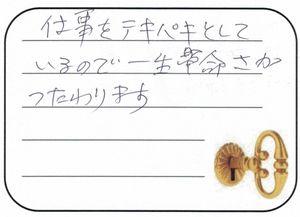 仕事をテキパキとして
いるので一生革命さが
つたわります